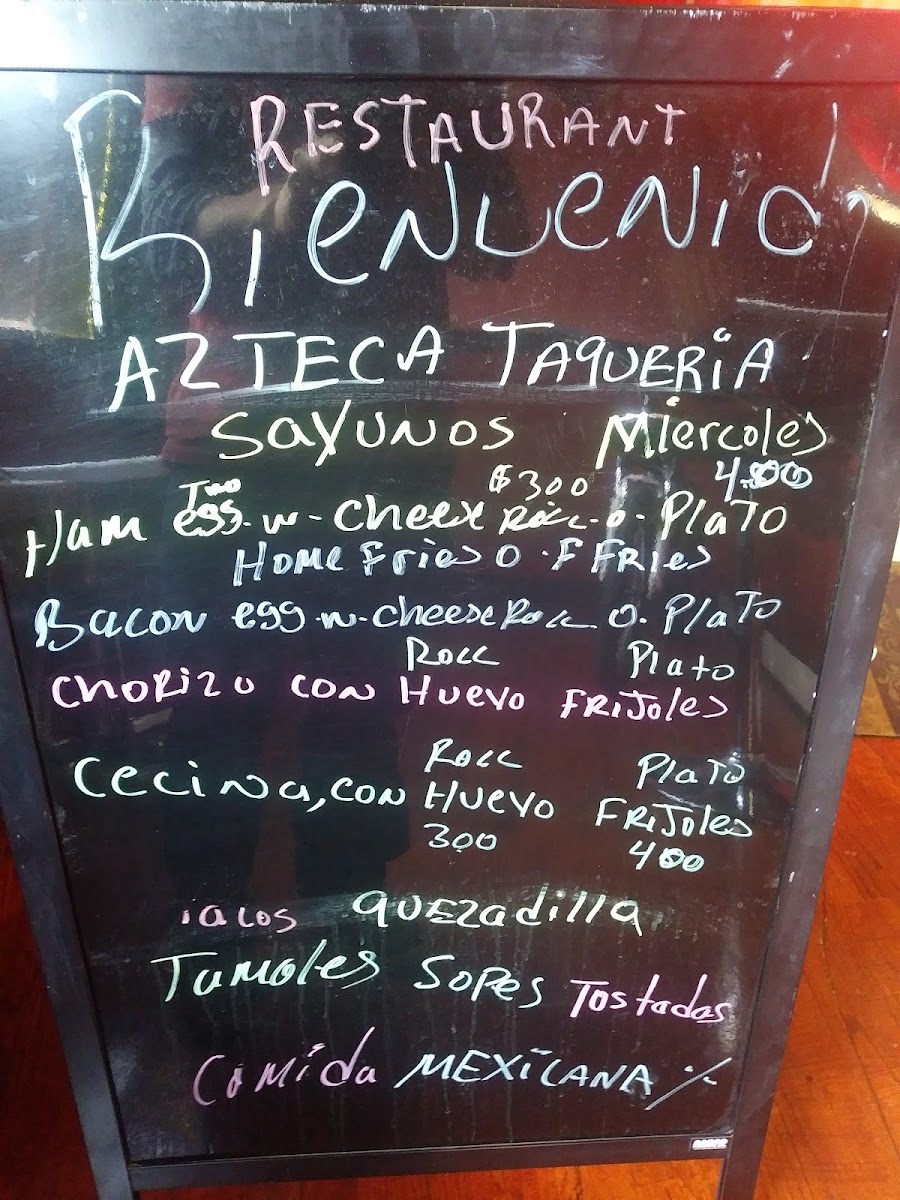 RESTAURANT
BIENVENID
AZTECA TAQUERIA
SAYUNOS MIERCOLES
$300 4.00
Ham Two egg-w-cheese Roll-o-Plato
Home Fries o.F FRies
Bacon egg-w-cheese Roll o.Plato
Roll Plato
CHORIZO CON HUEVO FRIJOLES
Roll Plato
Cecina, con HUEVO FRIJOLES
300 400
TACOS QUEZadilla
Tamales SOPES Tostadas
Comida MEXICANA